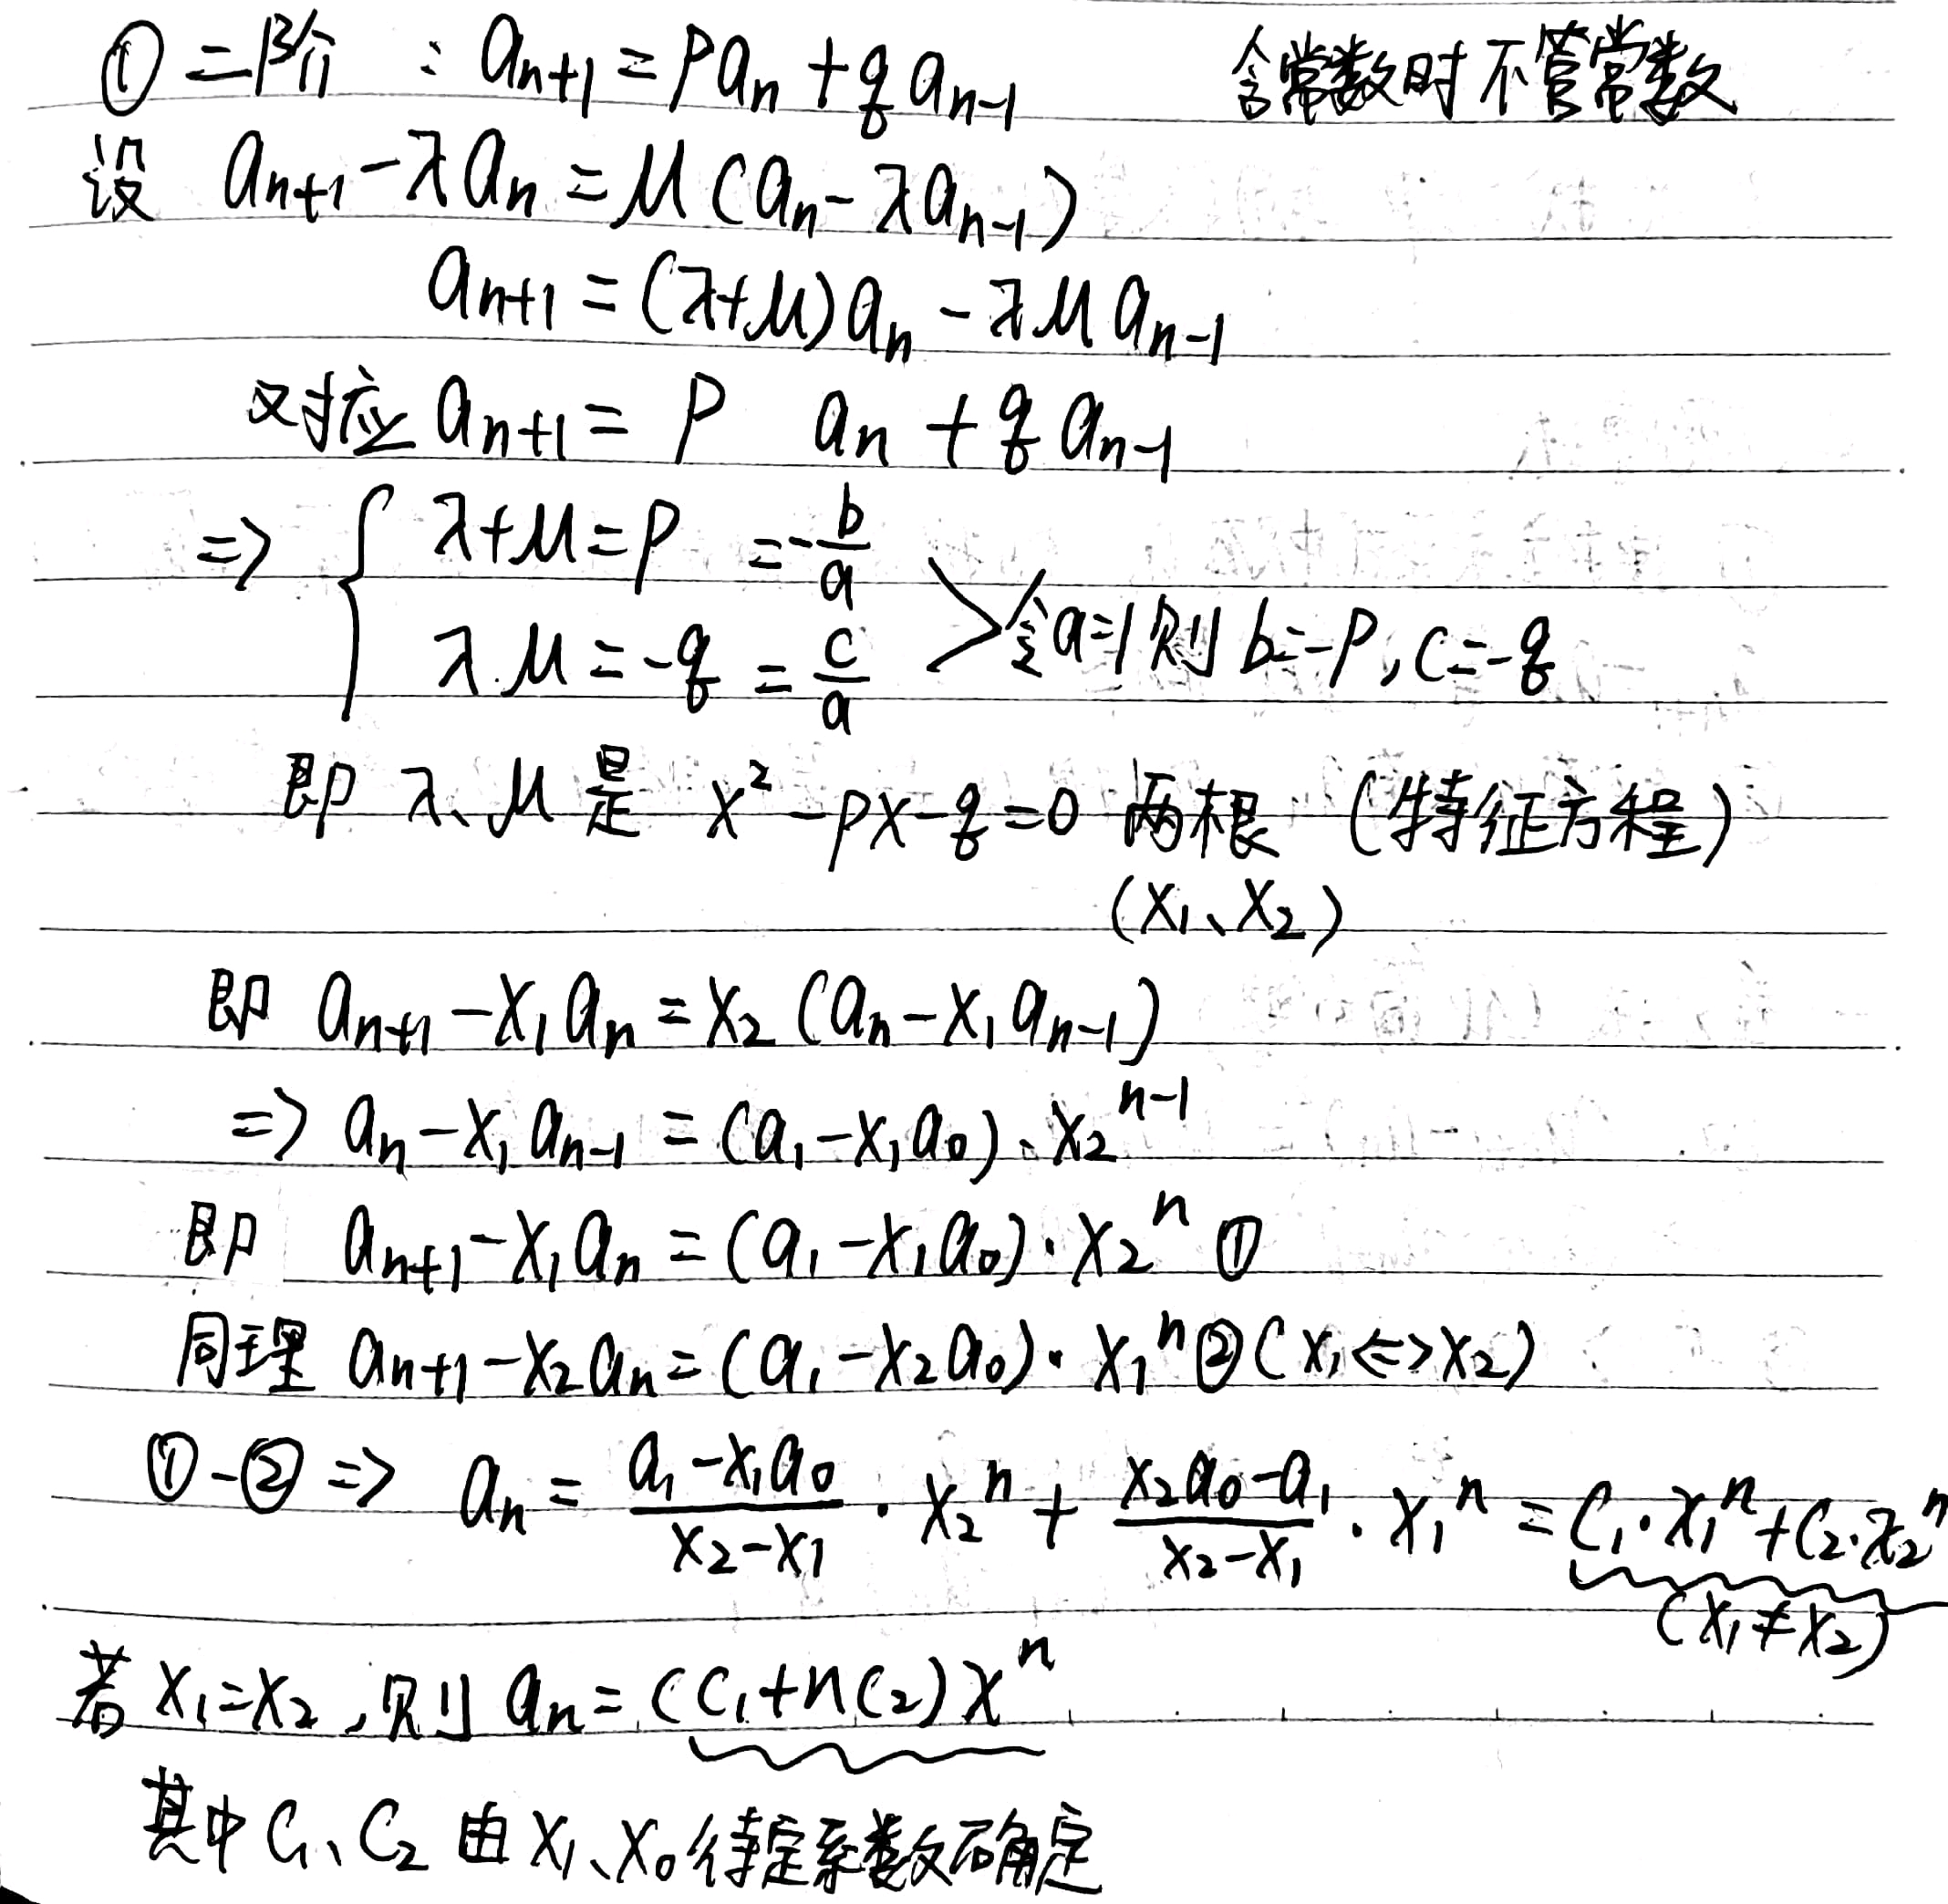 ① 二阶 : aₙ₊₁ = paₙ + qaₙ₋₁ 含常数时不管常数
设 aₙ₊₁ - λaₙ = μ(aₙ - λaₙ₋₁)
aₙ₊₁ = (λ+μ)aₙ - λμaₙ₋₁
对应 aₙ₊₁ = p aₙ + qaₙ₋₁
⇒ { λ+μ = p = -b/a
λ.μ = -q = c/a > 令a=1则 b=-p, c=-q
即 λ、μ 是 x² - px - q = 0 两根 (特征方程)
(x₁、x₂)
即 aₙ₊₁ - x₁aₙ = x₂(aₙ - x₁aₙ₋₁)
⇒ aₙ - x₁aₙ₋₁ = (a₁ - x₁a₀)·x₂ⁿ⁻¹
即 aₙ₊₁ - x₁aₙ = (a₁ - x₁a₀)·x₂ⁿ ①
同理 aₙ₊₁ - x₂aₙ = (a₁ - x₂a₀)·x₁ⁿ ② (x₁⇔x₂)
①-② ⇒ aₙ = (a₁ - x₁a₀)/(x₂ - x₁) · x₂ⁿ + (x₂a₀ - a₁)/(x₂ - x₁) · x₁ⁿ = C₁·x₁ⁿ + C₂·x₂ⁿ
(x₁≠x₂)
若 x₁=x₂,则 aₙ = (C₁+nC₂)xⁿ
其中 C₁、C₂ 由 x₁、x₀ 待定系数确定